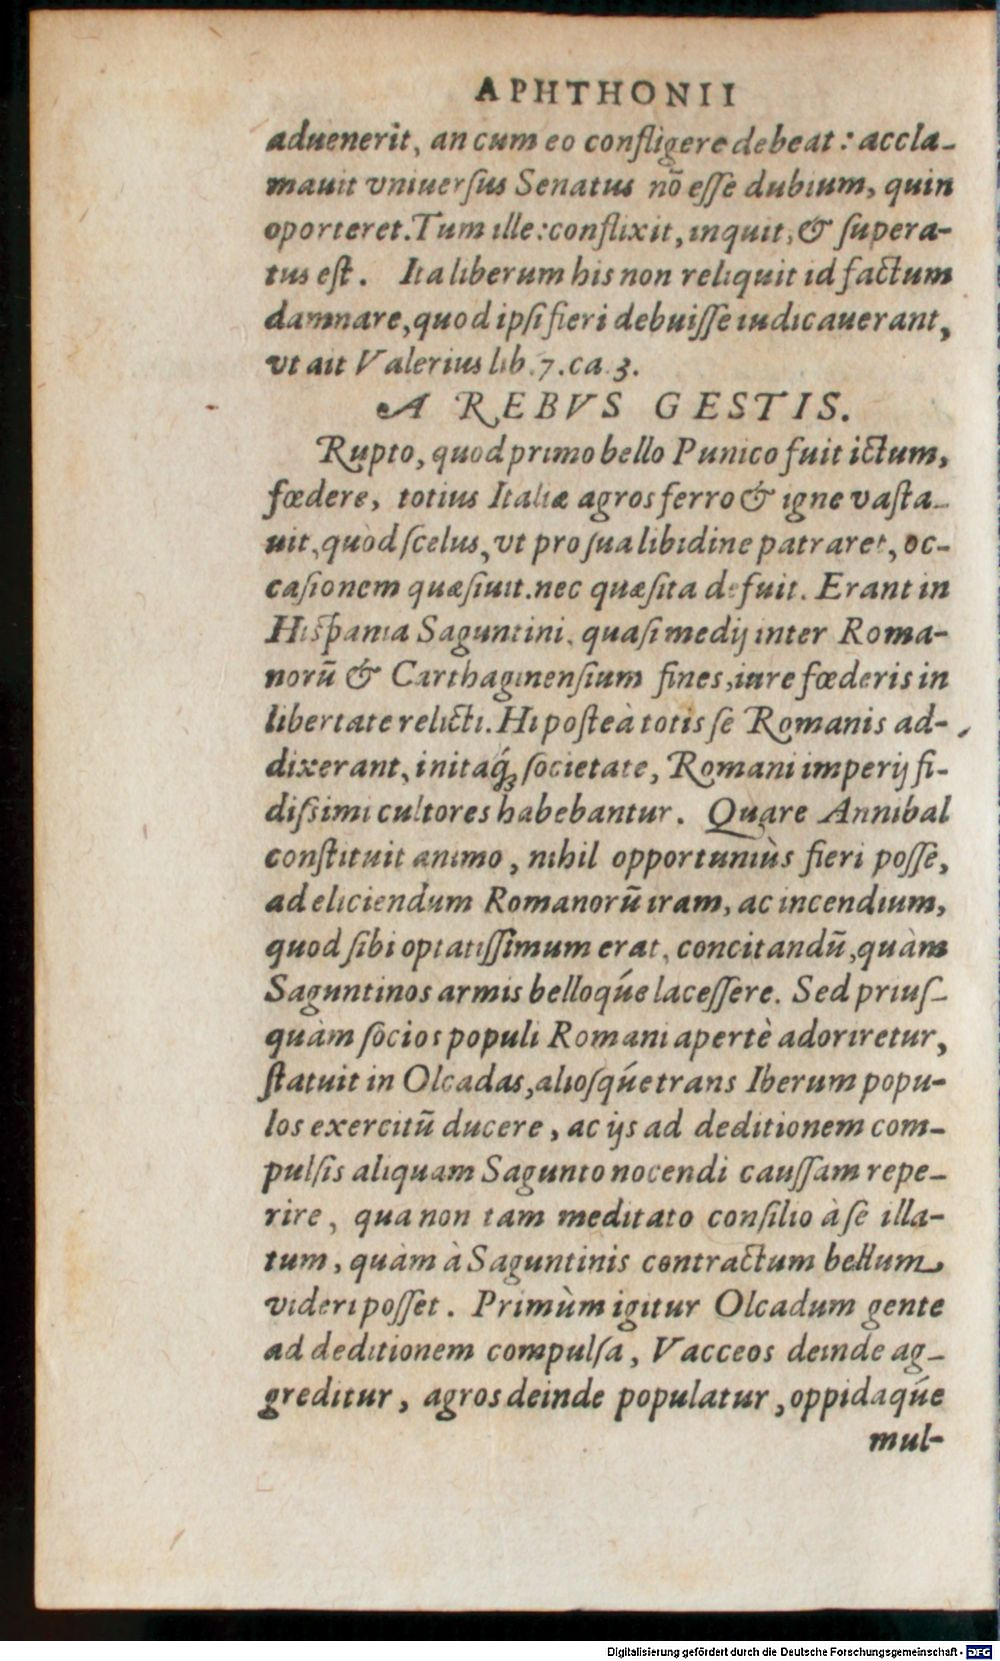 APHTHONII
aduenerit, an cum eo confligere debeat: accla-
mauit vniuerſus Senatus nō eſſe dubium, quin
oporteret. Tum ille: conflixit, inquit, & ſupera-
tus eſt. Ita liberum his non reliquit id factum
damnare, quod ipſi fieri debuiſſe iudicauerant,
vt ait Valerius lib. 7. ca. 3.
A REBVS GESTIS.
Rupto, quod primo bello Punico fuit ictum,
fœdere, totius Italiæ agros ferro & igne vaſta-
uit, quòd ſcelus, vt pro ſua libidine patraret, oc-
caſionem quæſiuit. nec quæſita defuit. Erant in
Hiſpania Saguntini, quaſi medij inter Roma-
norū & Carthaginenſium fines, iure fœderis in
libertate relicti. Hi poſteà totis ſe Romanis ad-
dixerant, initaq́ꝫ ſocietate, Romani imperij fi-
diſsimi cultores habebantur. Quare Annibal
conſtituit animo, nihil opportuniùs fieri poſſe,
ad eliciendum Romanorū iram, ac incendium,
quod ſibi optatiſſimum erat, concitandū, quàm
Saguntinos armis belloq́ue laceſſere. Sed priuſ-
quàm ſocios populi Romani apertè adoriretur,
ſtatuit in Olcadas, alioſq́ue trans Iberum popu-
los exercitū ducere, ac ijs ad deditionem com-
pulſis aliquam Sagunto nocendi cauſſam repe-
rire, qua non tam meditato conſilio à ſe illa-
tum, quàm à Saguntinis contractum bellum
videri poſſet. Primùm igitur Olcadum gente
ad deditionem compulſa, Vacceos deinde ag-
greditur, agros deinde populatur, oppidaq́ue
mul-
Digitalisierung gefördert durch die Deutsche Forschungsgemeinschaft - DFG